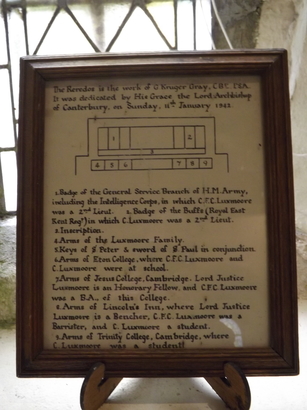 The Reredos is the work of G Kruger Gray, C.B.E. F.S.A.
It was dedicated by His Grace the Lord Archbishop
of Canterbury, on Sunday, 11th January
1 2
3
4 5 6 7 8 9
1. Badge of the General Service Branch of H.M. Army,
including the Intelligence Corps, in which C.F.C. Luxmoore
was a 2nd Lieut. 2. Badge of the Buffs (Royal East
Kent Regt) in which C. Luxmoore was a 2nd Lieut.
3. Inscription.
4. Arms of the Luxmoore Family.
5. Keys of St Peter & sword of St Paul in conjunction.
6. Arms of Eton College, where C.F.C. Luxmoore and
C. Luxmoore were at school.
7. Arms of Jesus College, Cambridge. Lord Justice
Luxmoore is an Honorary Fellow, and C.F.C. Luxmoore
was a B.A., of this College.
8. Arms of Lincoln's Inn, where Lord Justice
Luxmoore is a Bencher, C.F.C. Luxmoore was a
Barrister, and C. Luxmoore a student.
9. Arms of Trinity College, Cambridge, where
C. Luxmoore was a student.